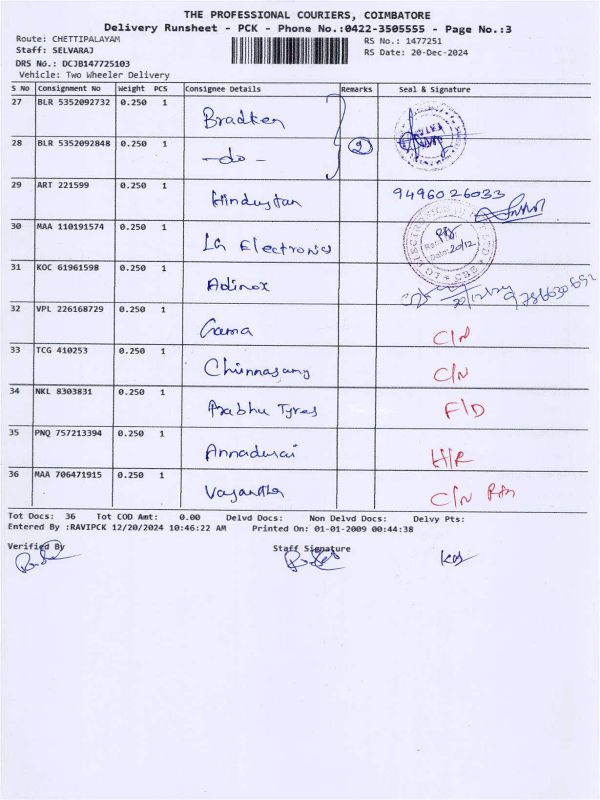 THE PROFESSIONAL COURIERS, COIMBATORE
Delivery Runsheet - PCK - Phone No.:0422-3505555 - Page No.:3
Route: CHETTIPALAYAM RS No.: 1477251
Staff: SELVARAJ RS Date: 20-Dec-2024
DRS No.: DCJB147725103
Vehicle: Two Wheeler Delivery
S No Consignment No Weight PCS Consignee Details Remarks Seal & Signature
27 BLR 5352092732 0.250 1 Bradken
28 BLR 5352092848 0.250 1 -do- 2
29 ART 221599 0.250 1 Hindustan 9496026033
30 MAA 110191574 0.250 1 LG Electronics 20/12
31 KOC 61961598 0.250 1 Adinox
32 VPL 226168729 0.250 1 Gama C/N
33 TCG 410253 0.250 1 Chinnasamy C/N
34 NKL 8303831 0.250 1 Prabhu Tyres F/D
35 PNQ 757213394 0.250 1 Annadurai H/R
36 MAA 706471915 0.250 1 Vasantha C/N
Tot Docs: 36 Tot COD Amt: 0.00 Delvd Docs: Non Delvd Docs: Delvy Pts:
Entered By :RAVIPCK 12/20/2024 10:46:22 AM Printed On: 01-01-2009 00:44:38
Verified By Staff Signature